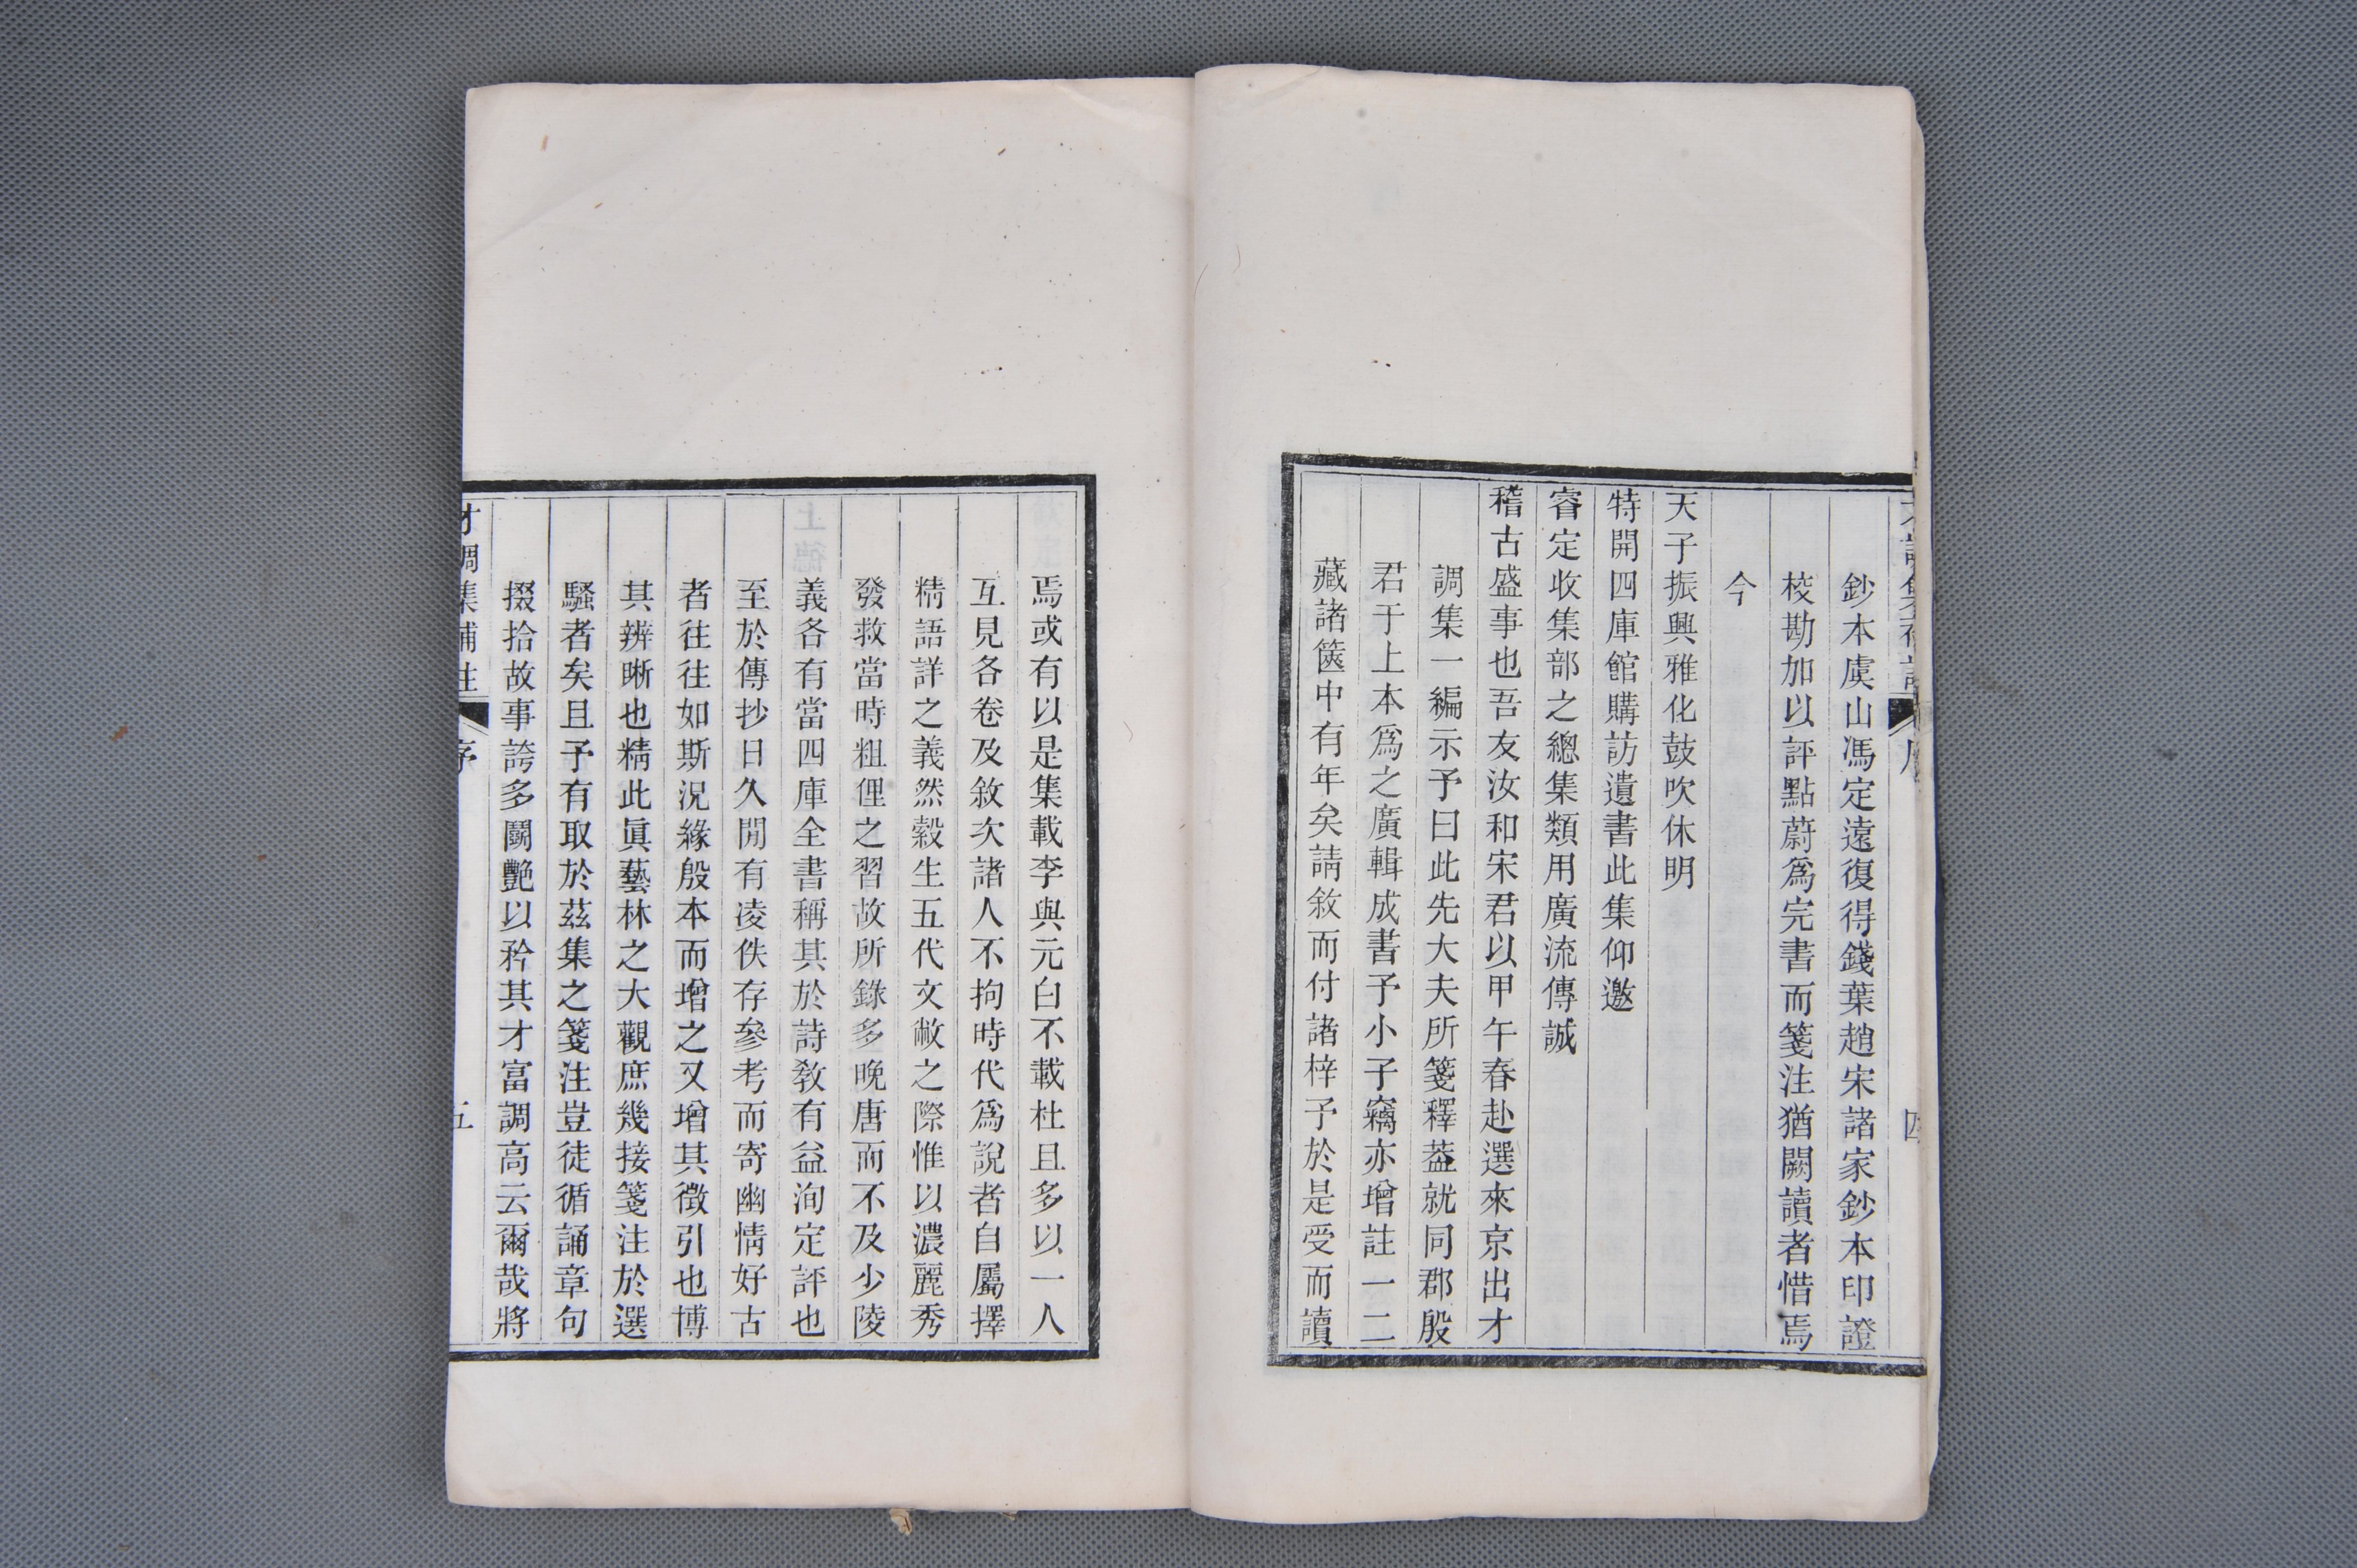 鈔本虞山馮定遠復得錢葉趙宋諸家鈔本印證
校勘加以評點蔚爲完書而箋注猶闕讀者惜焉
今
天子振興雅化鼓吹休明
特開四庫館購訪遺書此集仰邀
睿定收集部之總集類用廣流傳誠
稽古盛事也吾友汝和宋君以甲午春赴選來京出才
調集一編示予曰此先大夫所箋釋葢就同郡殷
君于上本爲之廣輯成書予小子竊亦增註一二
藏諸篋中有年矣請敘而付諸梓予於是受而讀
焉或有以是集載李與元白不載杜且多以一人
互見各卷及敘次諸人不拘時代爲說者自屬擇
精語詳之義然縠生五代文敝之際惟以濃麗秀
發救當時粗俚之習故所錄多晚唐而不及少陵
義各有當四庫全書稱其於詩敎有益洵定評也
至於傳抄日久閒有凌佚存參考而寄幽情好古
者往往如斯況緣殷本而增之又增其徵引也博
其辨晰也精此眞藝林之大觀庶幾接箋注於選
騷者矣且予有取於茲集之箋注豈徒循誦章句
掇拾故事誇多鬬艷以矜其才富調高云爾哉將
才調集補注
序
五